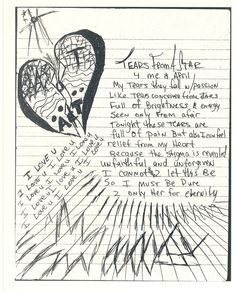 TEARS From A STAR
4 me & April
My Tears they fall w/passion
Like Tears concieved from STARS
Full of Brightness & energy
Seen only From afar
Tonight these TEARS are
full of pain But also
relief from my Heart
Because the stigma is
unfaithful and unforgiven
I cannot let this Be
So I must Be Pure
2 only Her for eternity
ART
I Love u
I Love u
I Love u
I Love u
I Love u
I Love u
I Love u